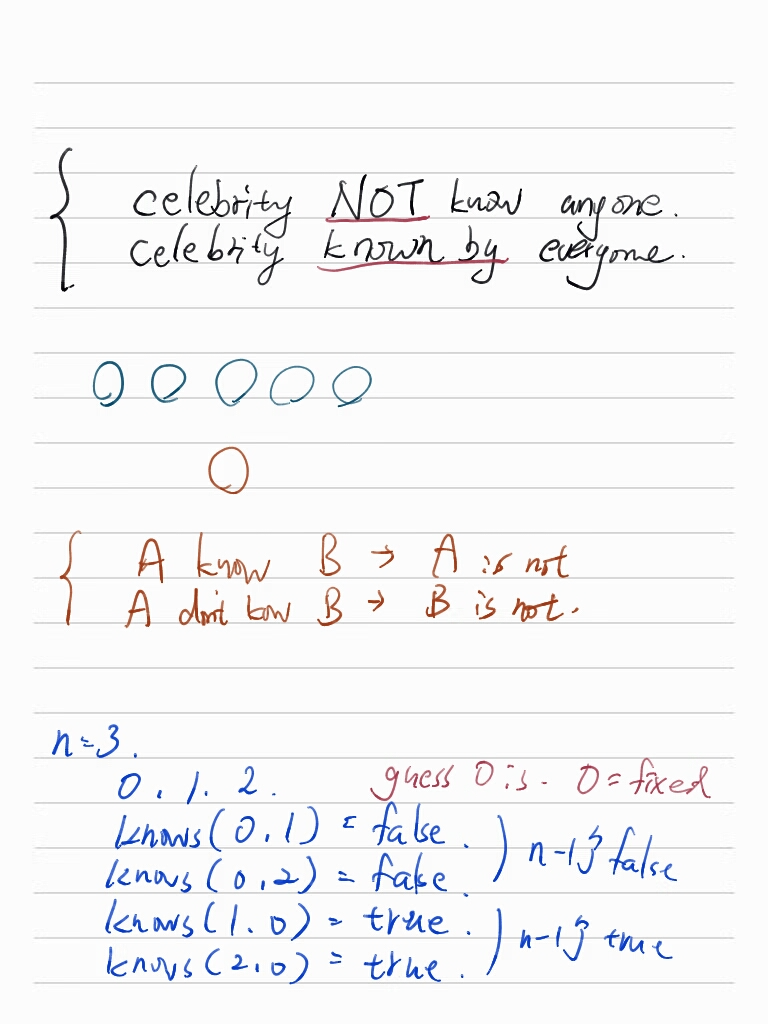 celebrity NOT know anyone.
celebrity known by everyone.
A know B → A is not
A don't know B → B is not.
n=3.
0, 1. 2. guess 0 is. 0 = fixed
knows(0,1) = false.
knows(0,2) = false. n-1个 false
knows(1.0) = true.
knows(2,0) = true. n-1个 true